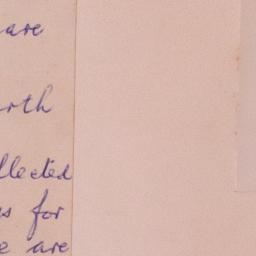 are
rth
llected
s for
e are